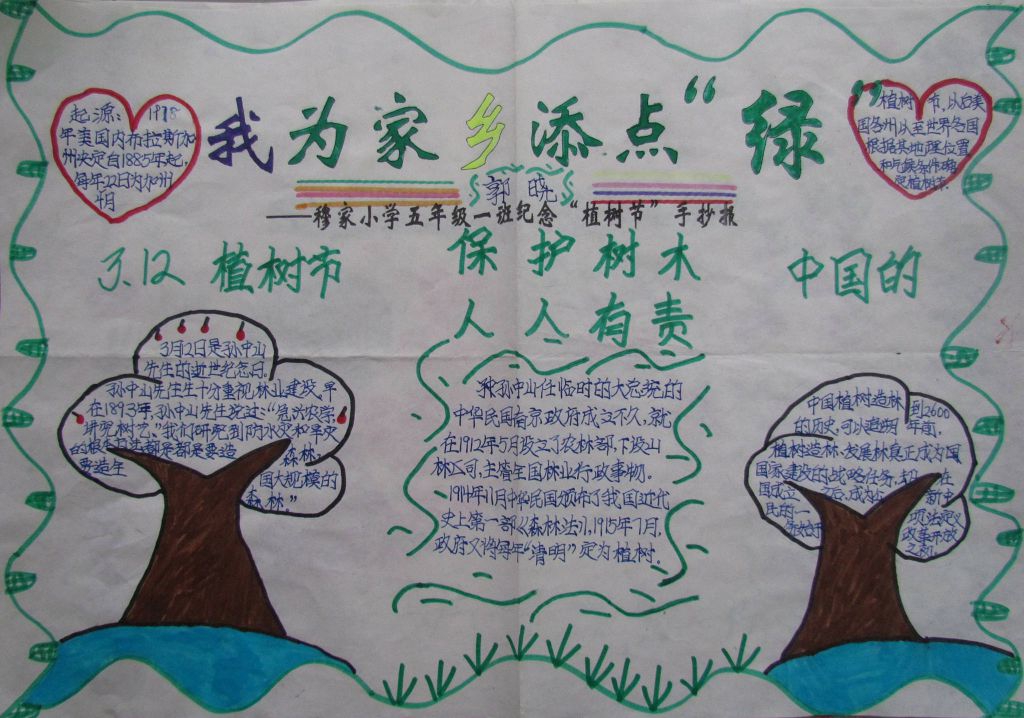 我为家乡添点“绿”
郭晓
——穆家小学五年级一班纪念“植树节”手抄报
起源：1978
年美国内布拉斯加
州决定自1885年起，
每年22日为加州
植树节，以后美
国各州以至世界各国
根据其地理位置
和气候条件确
定植树节.
3.12 植树节
保护树木
人人有责
中国的
3月12日是孙中山
先生的逝世纪念日.
孙中山先生生十分重视林业建设，早
在1893年，孙中山先生说过：“急兴农学，
讲究树艺.”我们研究到防水灾和旱灾
的根本方法都是都是要造森林，
要造全国大规模的
森林.”
孙中山任临时的大总统的
中华民国南京政府成立不久，就
在1912年5月设立了农林部，下设山
林公司，主管全国林业行政事物.
1914年11月中华民国颁布了我国近代
史上第一部《森林法》，1915年7月，
政府又将每年“清明”定为植树.
中国植树造林
的历史，可以追朔到2600
年前，
植树造林，发展林真正成为国
国家建设的战略任务，
国成立
民的一
项法定义
政革开放
之初.